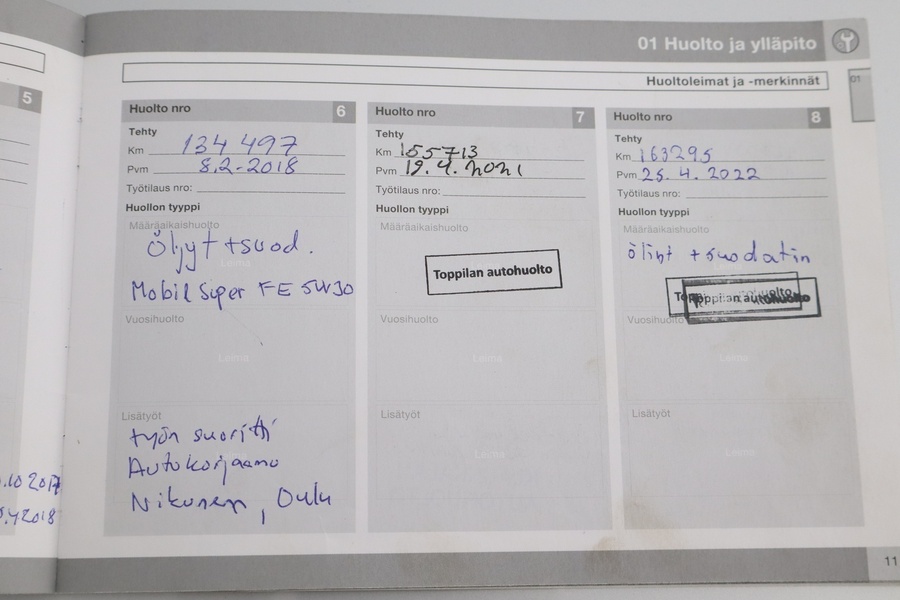 5
.10 2017
5.4 2018
01 Huolto ja ylläpito
Huoltoleimat ja -merkinnät
01
Huolto nro 6
Tehty
Km 134 497
Pvm 8.2-2018
Työtilaus nro:
Huollon tyyppi
Määräaikaishuolto
Öljyt + suod.
Mobil Super FE 5W30
Vuosihuolto
Leima
Lisätyöt
työn suoritti
Autokorjaamo
Nikunen, Oulu
Huolto nro 7
Tehty
Km 155713
Pvm 19.4.2021
Työtilaus nro:
Huollon tyyppi
Määräaikaishuolto
Toppilan autohuolto
Vuosihuolto
Leima
Lisätyöt
Leima
Huolto nro 8
Tehty
Km 163295
Pvm 25.4.2022
Työtilaus nro:
Huollon tyyppi
Määräaikaishuolto
öljyt + suodatin
Toppilan autohuolto
Vuosihuolto
Leima
Lisätyöt
Leima
11